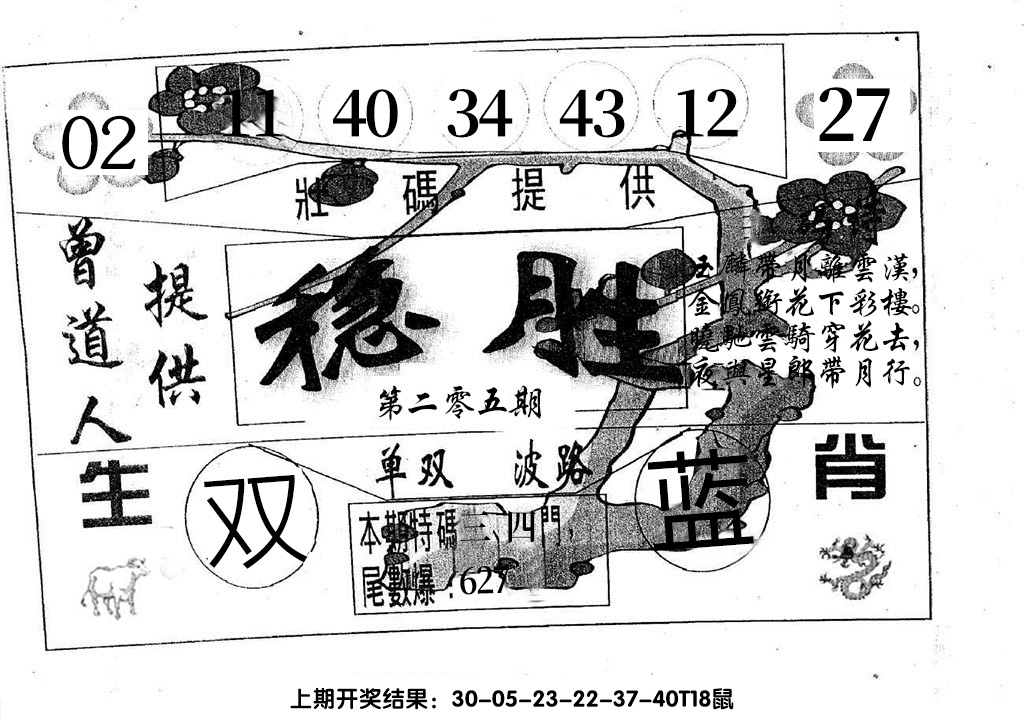 02 11 40 34 43 12 27
壯碼提供
曾道人
提供
稳胜
第二零五期
玉麟帶月離雲漢，
金鳳銜花下彩樓。
曉馳雲騎穿花去，
夜與星郎帶月行。
单双 波路
生
双
蓝
肖
本期特碼三、四門，
尾數爆：627
上期开奖结果：30-05-23-22-37-40T18鼠